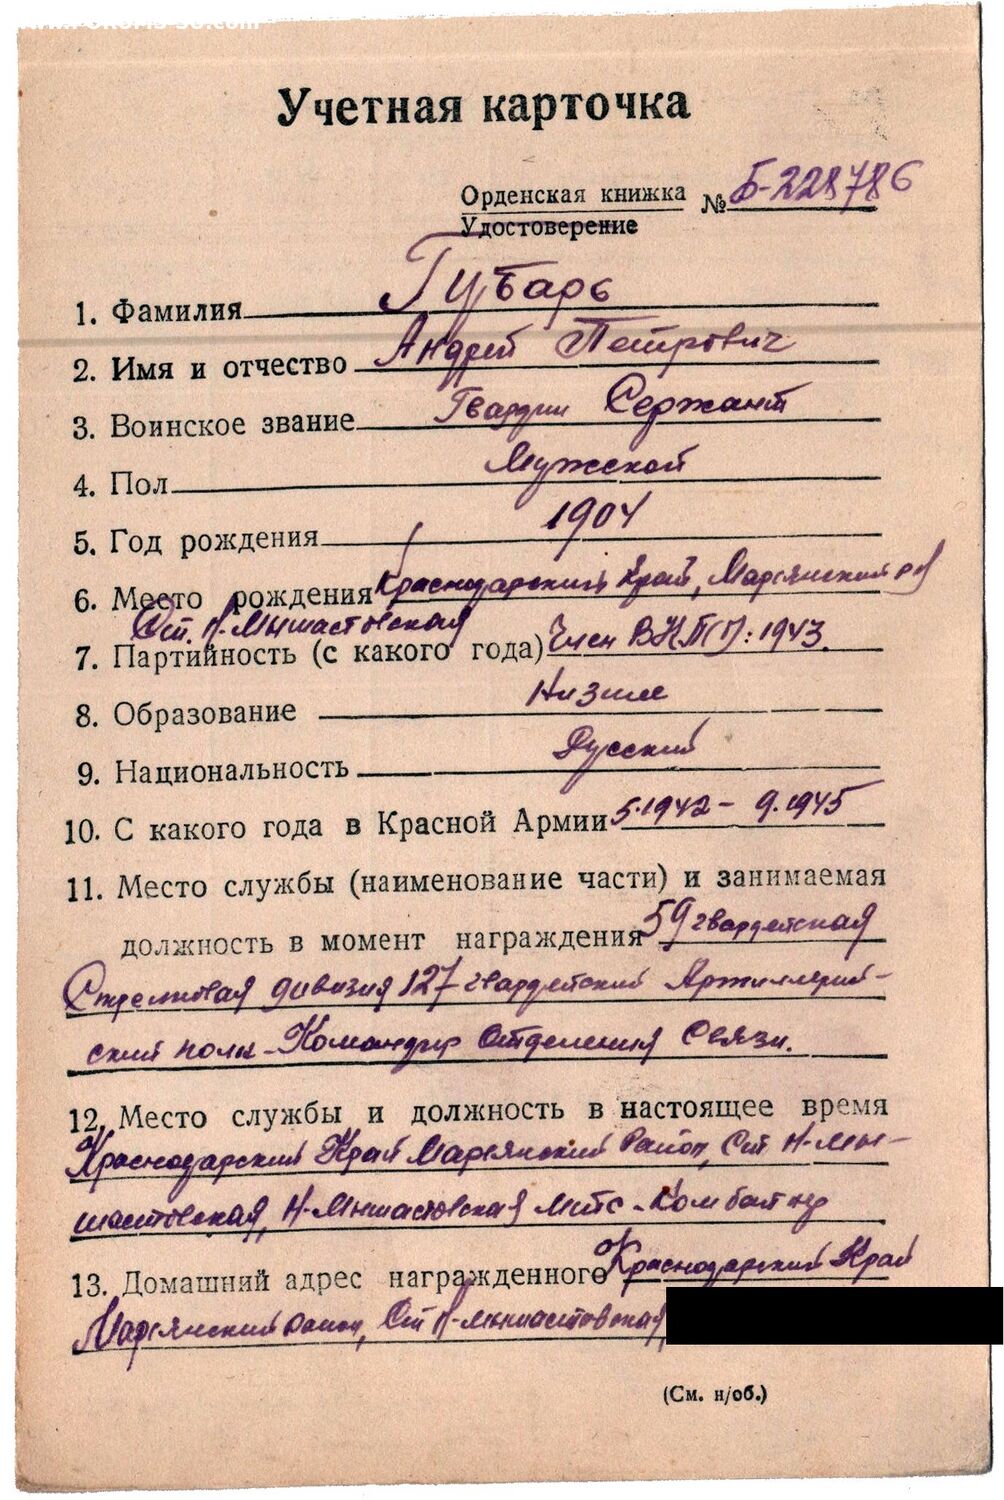 Учетная карточка
Орденская книжка № Б-228786
Удостоверение
1. Фамилия Губарь
2. Имя и отчество Андрей Петрович
3. Воинское звание Гвардии Сержант
4. Пол Мужской
5. Год рождения 1904
6. Место рождения Краснодарский Край, Марьянский р-н
Ст. Н-Мышастовская
7. Партийность (с какого года) Член ВКП(б): 1943.
8. Образование Низшее
9. Национальность Русский
10. С какого года в Красной Армии 5.1942 - 9.1945
11. Место службы (наименование части) и занимаемая
должность в момент награждения 59 гвардейская
Стрелковая дивизия 127 гвардейский Артиллерий-
ский полк - Командир Отделения Связи.
12. Место службы и должность в настоящее время
Краснодарский Край Марьянский Район, Ст Н-Мы-
шастовская, Н-Мышастовская МТС - Комбайнер
13. Домашний адрес награжденного Краснодарский Край
Марьянский район, Ст Н-Мышастовская
(См. н/об.)